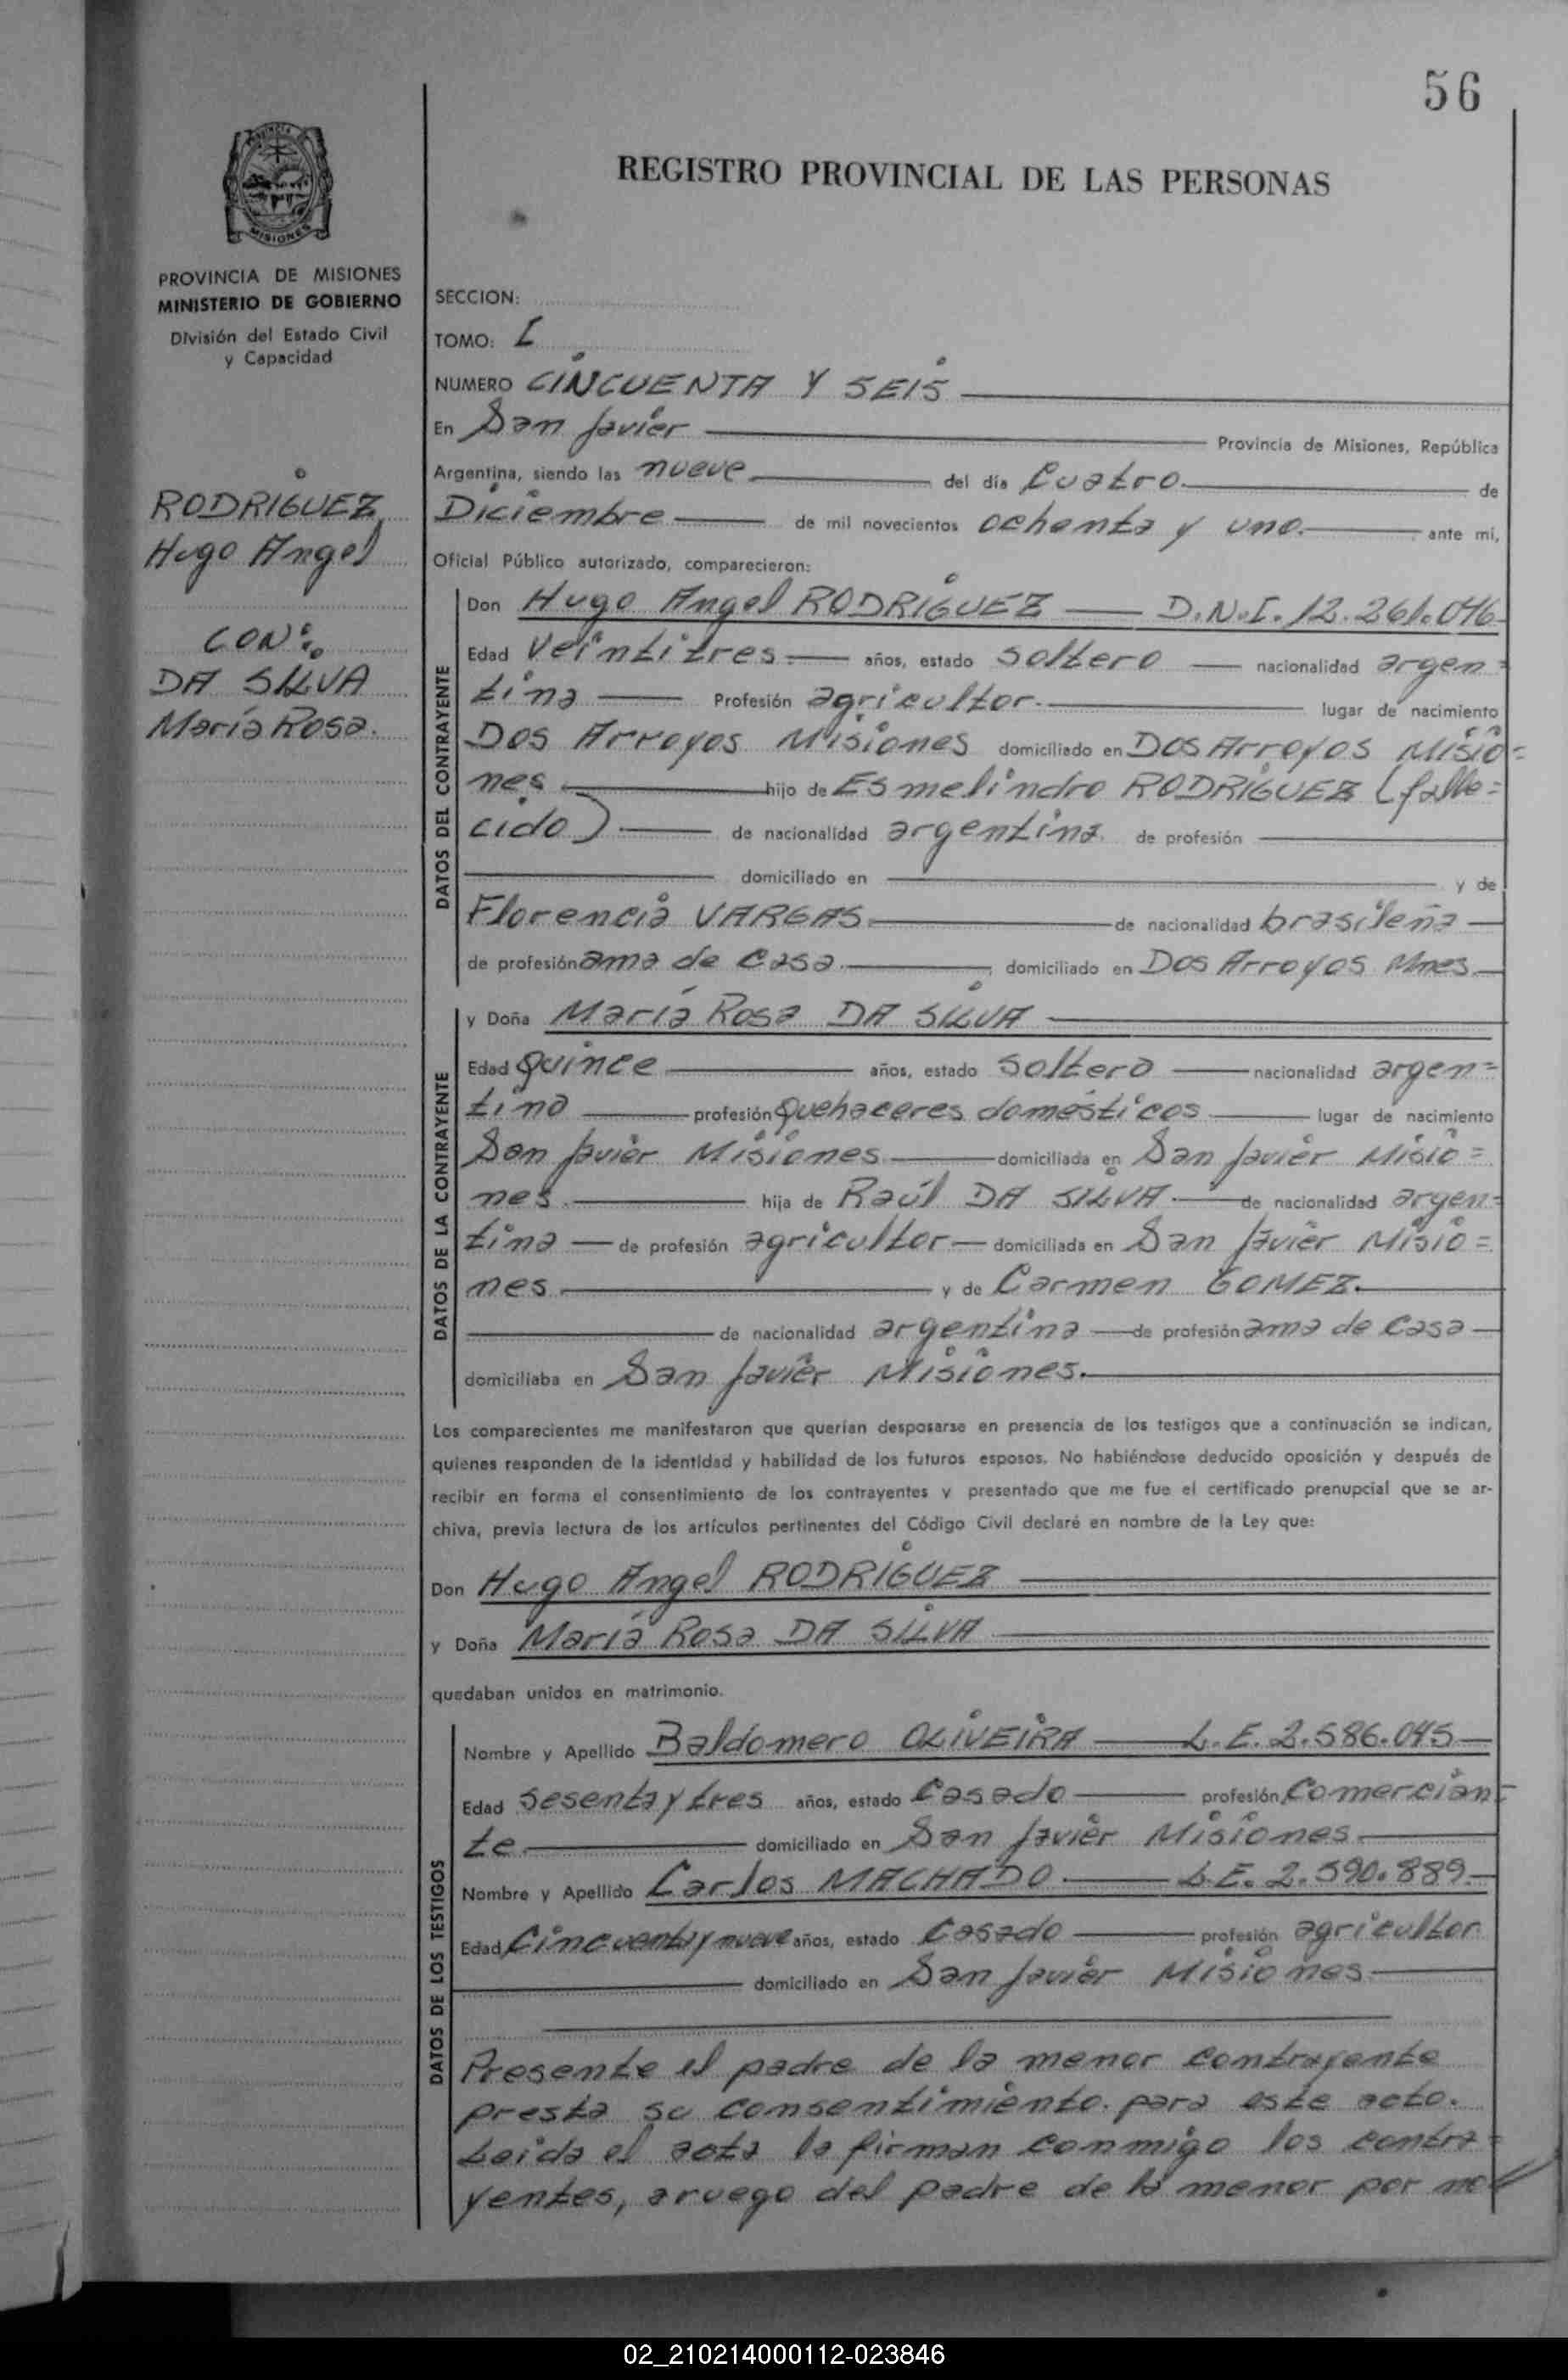 56
REGISTRO PROVINCIAL DE LAS PERSONAS
PROVINCIA
MISIONES
PROVINCIA DE MISIONES
MINISTERIO DE GOBIERNO
División del Estado Civil
y Capacidad
RODRIGUEZ,
Hugo Angel
CON:
DA SILVA
María Rosa.
SECCION:
TOMO: I
NUMERO CINCUENTA Y SEIS
En San Javier Provincia de Misiones, República
Argentina, siendo las nueve del día Cuatro de
Diciembre de mil novecientos ochenta y uno. ante mí,
Oficial Público autorizado, comparecieron:
DATOS DEL CONTRAYENTE
Don Hugo Angel RODRIGUEZ — D.N.I. 12.261.046
Edad Veintitres años, estado soltero nacionalidad argen=
tina Profesión agricultor. lugar de nacimiento
Dos Arroyos Misiones domiciliado en Dos Arroyos Misio=
nes hijo de Esmelindro RODRIGUEZ (falle=
cido) de nacionalidad argentina. de profesión
domiciliado en y de
Florencia VARGAS de nacionalidad brasileña
de profesión ama de casa. domiciliado en Dos Arroyos Mnes.
DATOS DE LA CONTRAYENTE
y Doña María Rosa DA SILVA
Edad quince años, estado soltera nacionalidad argen=
tina profesión quehaceres domésticos lugar de nacimiento
San Javier Misiones domiciliada en San Javier Misio=
nes. hija de Raúl DA SILVA de nacionalidad argen=
tina de profesión agricultor domiciliada en San Javier Misio=
nes y de Carmen GOMEZ.
de nacionalidad argentina de profesión ama de casa
domiciliaba en San Javier Misiones.
Los comparecientes me manifestaron que querían desposarse en presencia de los testigos que a continuación se indican,
quienes responden de la identidad y habilidad de los futuros esposos. No habiéndose deducido oposición y después de
recibir en forma el consentimiento de los contrayentes y presentado que me fue el certificado prenupcial que se ar-
chiva, previa lectura de los artículos pertinentes del Código Civil declaré en nombre de la Ley que:
Don Hugo Angel RODRIGUEZ
y Doña María Rosa DA SILVA
quedaban unidos en matrimonio.
DATOS DE LOS TESTIGOS
Nombre y Apellido Baldomero OLIVEIRA — L.E. 2.586.045
Edad sesenta y tres años, estado casado profesión Comercian=
te domiciliado en San Javier Misiones
Nombre y Apellido Carlos MACHADO — L.E. 2.590.889
Edad Cincuenta y nueve años, estado casado profesión agricultor
domiciliado en San Javier Misiones
Presente el padre de la menor contrayente
presta su consentimiento. para este acto.
Leida el acta la firman conmigo los contra=
yentes, aruego del padre de la menor por no
02_210214000112-023846